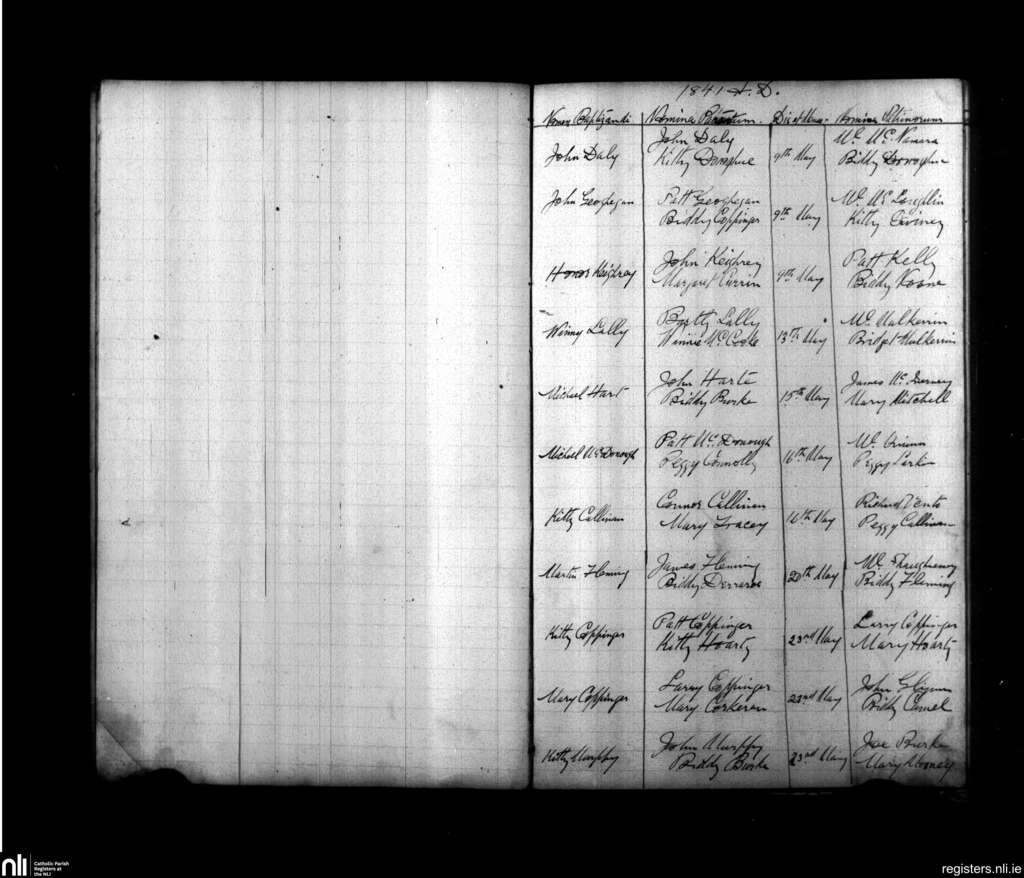 1841 A.D.
Nomen Baptizandi Nomina Parentum. Die et Mense Nomina Patrinorum
John Daly
John Daly
Kitty Donoghue
9th May
Wm. McNamara
Biddy Donoghue
John Geoghegan
Patt Geoghegan
Biddy Coppinger
9th May
Wm. McLoughlin
Kitty
Honor Keighrey
John Keighrey
Margaret Currin
9th May
Patt Kelly
Biddy Noone
Winny Lally
Bartty Lally
Winnie McCoole
13th May
Wm. Mulkerrin
Bridget Mulkerrin
Michael Hart
John Harte
Biddy Burke
15th May
James
Mary Mitchell
Michael McDonough
Patt McDonough
Peggy Connolly
16th May
Wm.
Peggy Larkin
Kitty Callinan
Connor Callinan
Mary Tracey
16th May
Richard
Peggy Callinan
Martin Fleming
James Fleming
Biddy
20th May
Wm. Shaughnessy
Biddy Fleming
Kitty Coppinger
Patt Coppinger
Kitty Hoarty
23rd May
Larry Coppinger
Mary Hoarty
Mary Coppinger
Larry Coppinger
Mary Corkeran
23rd May
John Glynn
Biddy
Kitty Murphy
John Murphy
Biddy Burke
23rd May
Joe Burke
Mary Mooney
nli
Catholic Parish
Registers at
the NLI
registers.nli.ie